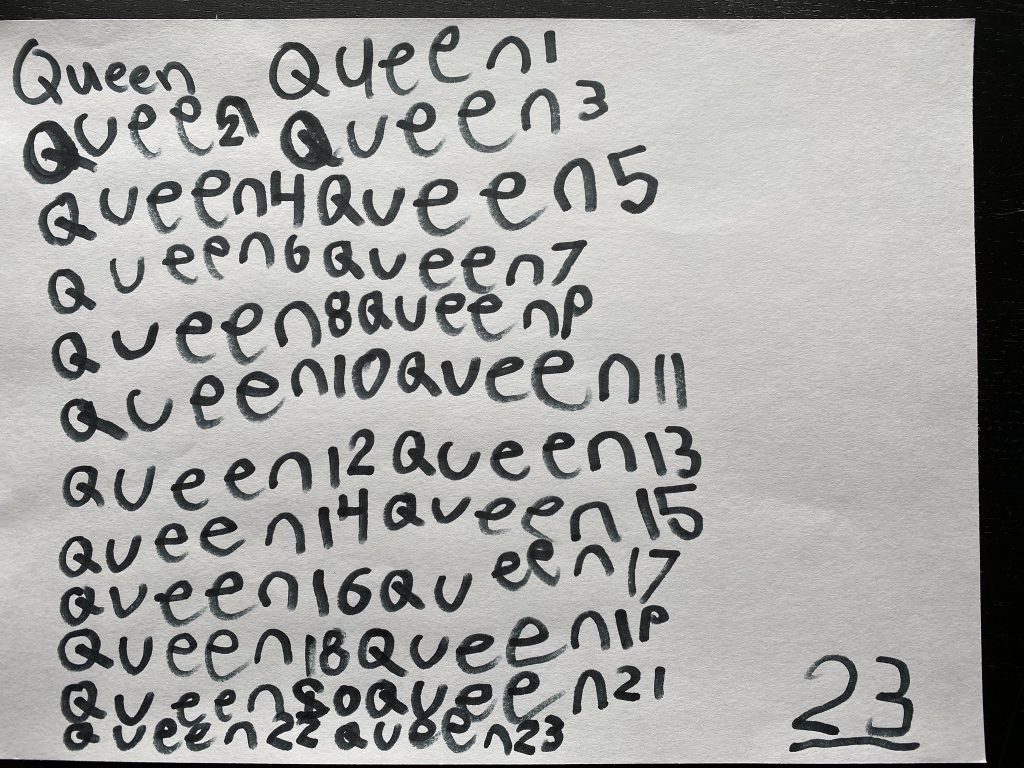 Queen Queen1
Queen2 Queen3
Queen4 Queen5
Queen6 Queen7
Queen8 QueenP
Queen10 Queen11
Queen12 Queen13
Queen14 Queen15
Queen16 Queen17
Queen18 Queen1P
Queen20 Queen21
Queen22 Queen23
23